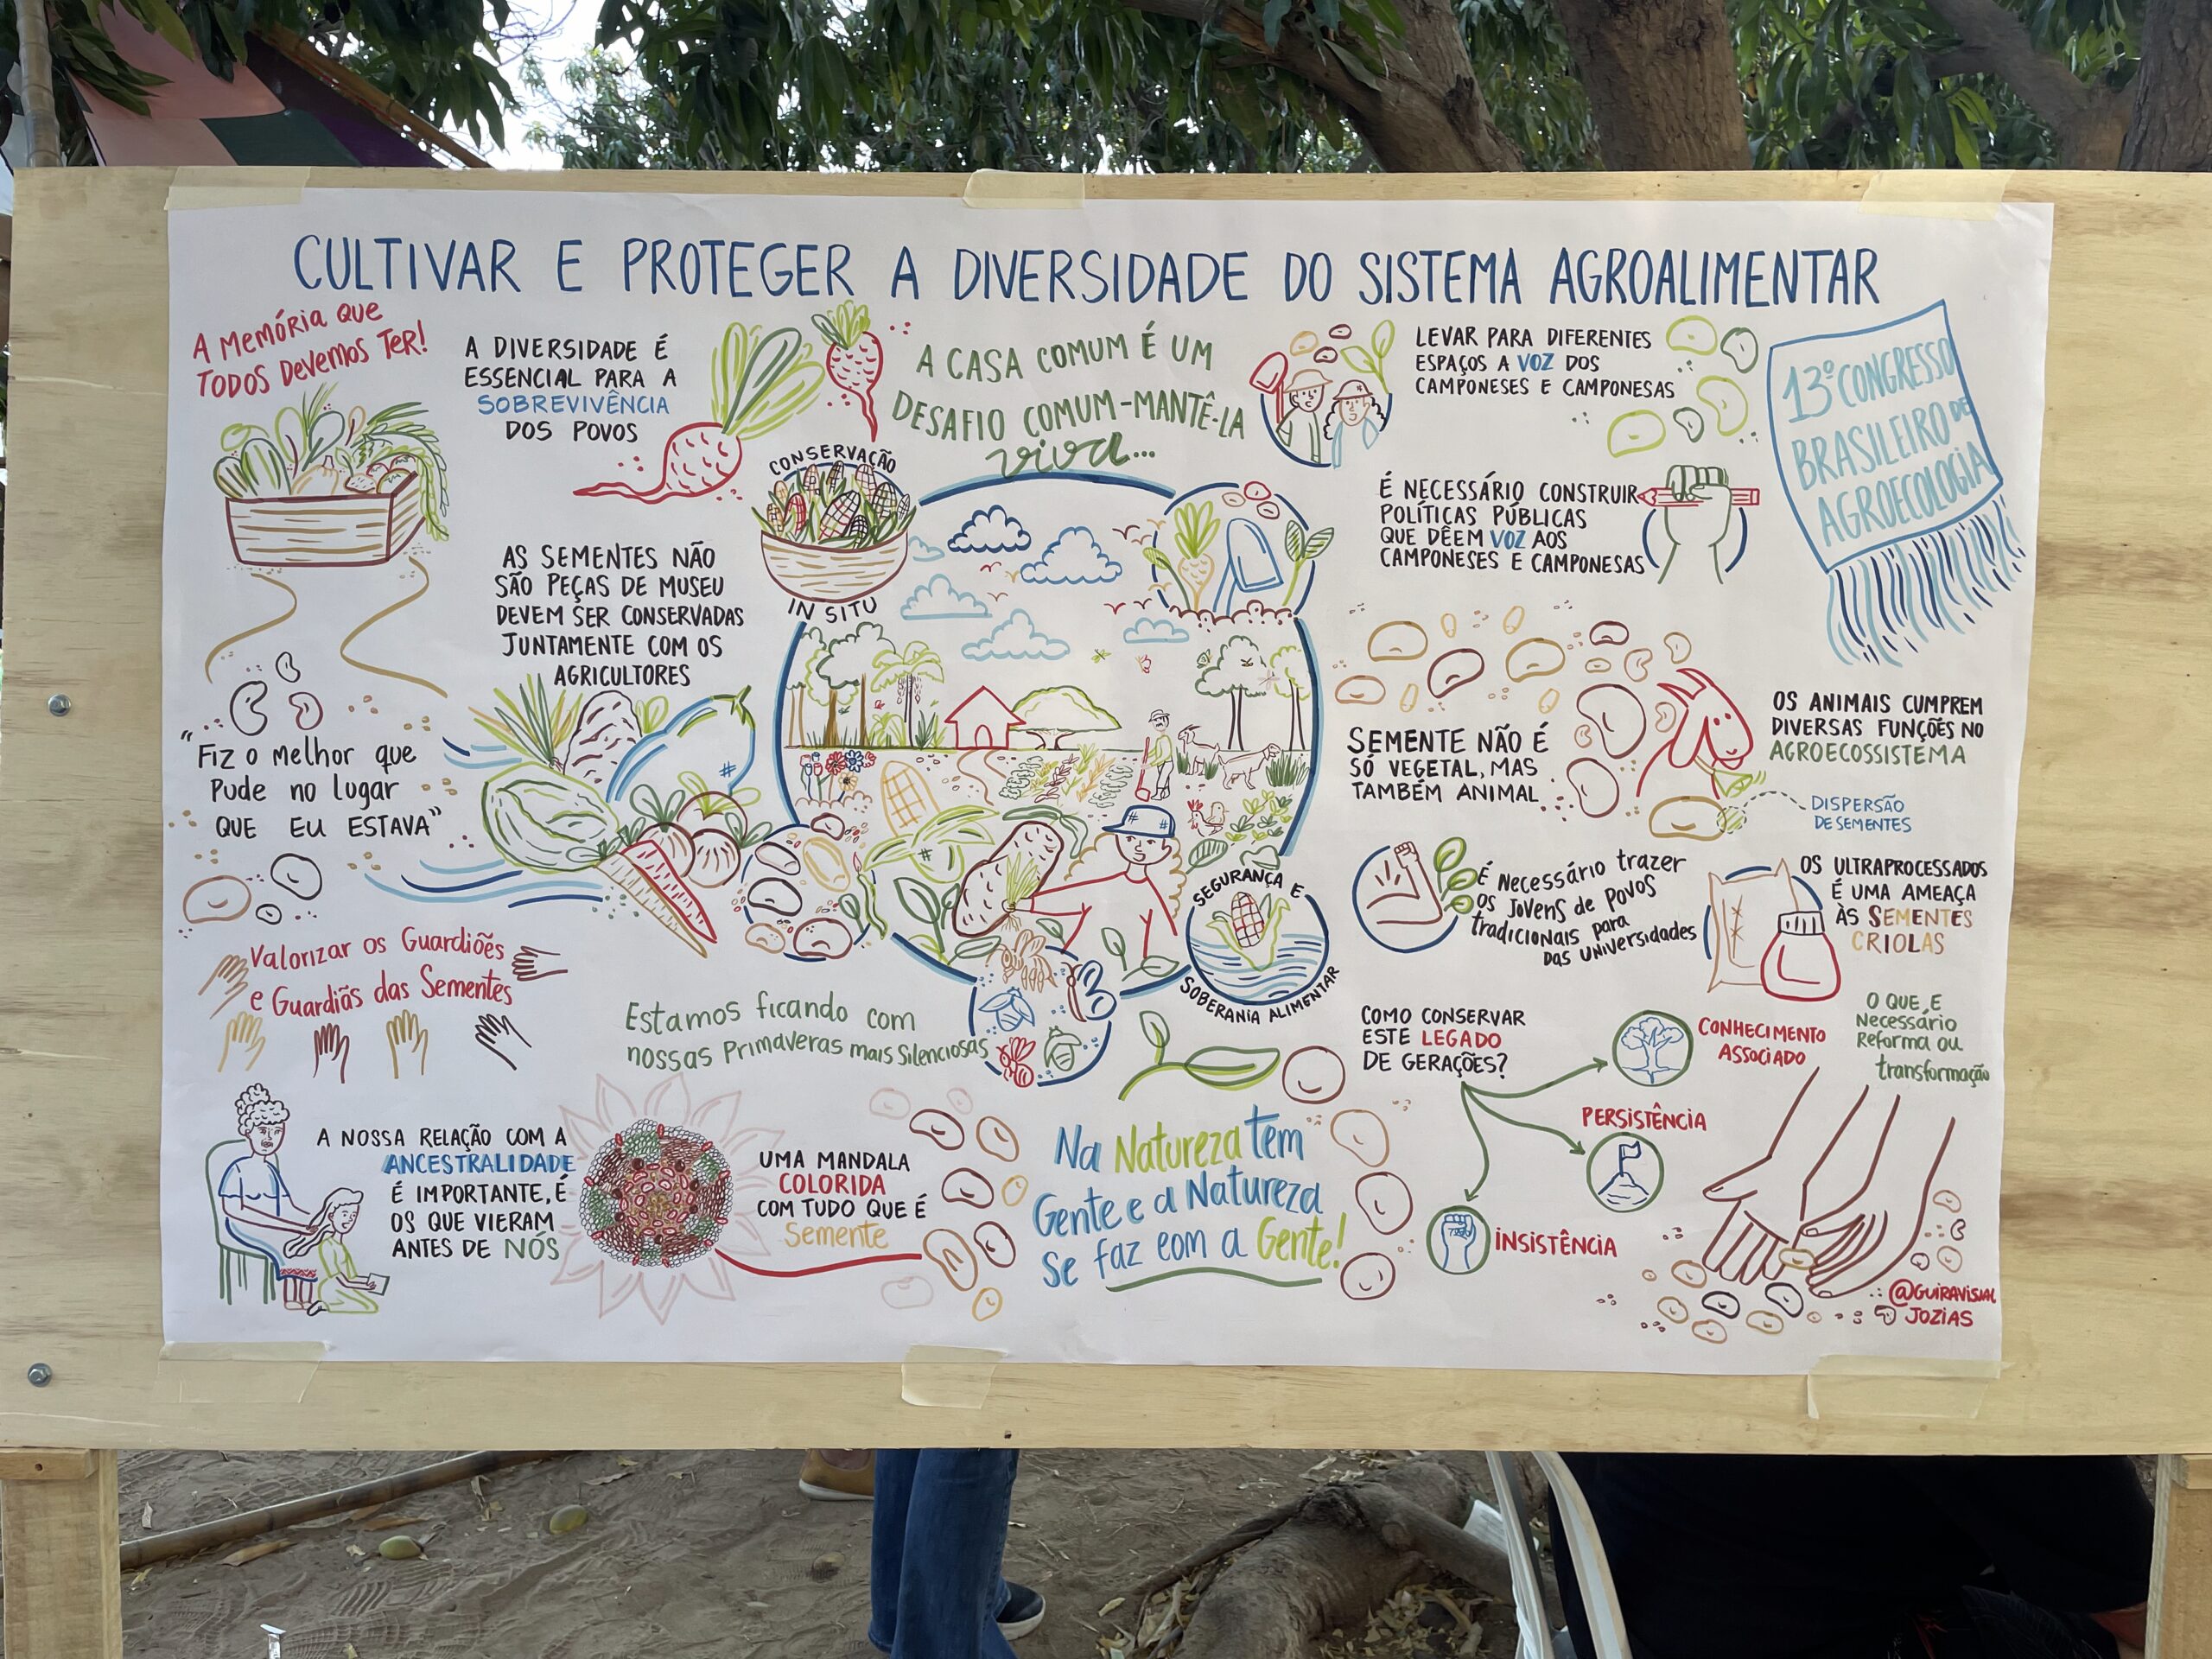 CULTIVAR E PROTEGER A DIVERSIDADE DO SISTEMA AGROALIMENTAR
A MEMÓRIA QUE
TODOS DEVEMOS TER!
A DIVERSIDADE É
ESSENCIAL PARA A
SOBREVIVÊNCIA
DOS POVOS
A CASA COMUM É UM
DESAFIO COMUM-MANTÊ-LA
viva...
LEVAR PARA DIFERENTES
ESPAÇOS A VOZ DOS
CAMPONESES E CAMPONESAS
13º CONGRESSO
BRASILEIRO DE
AGROECOLOGIA
CONSERVAÇÃO
IN SITU
É NECESSÁRIO CONSTRUIR
POLÍTICAS PÚBLICAS
QUE DÊEM VOZ AOS
CAMPONESES E CAMPONESAS
AS SEMENTES NÃO
SÃO PEÇAS DE MUSEU
DEVEM SER CONSERVADAS
JUNTAMENTE COM OS
AGRICULTORES
"Fiz o melhor que
Pude no lugar
QUE EU ESTAVA"
SEMENTE NÃO É
SÓ VEGETAL, MAS
TAMBÉM ANIMAL
OS ANIMAIS CUMPREM
DIVERSAS FUNÇÕES NO
AGROECOSSISTEMA
DISPERSÃO
DE SEMENTES
É Necessário trazer
os Jovens de Povos
tradicionais para
das Universidades
OS ULTRAPROCESSADOS
É UMA AMEAÇA
ÀS SEMENTES
CRIOLAS
SEGURANÇA E
SOBERANIA ALIMENTAR
Valorizar os Guardiões
e Guardiãs das Sementes
Estamos ficando com
nossas Primaveras mais Silenciosas
COMO CONSERVAR
ESTE LEGADO
DE GERAÇÕES?
CONHECIMENTO
ASSOCIADO
PERSISTÊNCIA
INSISTÊNCIA
O QUE E
Necessário
Reforma ou
transformação
A NOSSA RELAÇÃO COM A
ANCESTRALIDADE
É IMPORTANTE, É
OS QUE VIERAM
ANTES DE NÓS
UMA MANDALA
COLORIDA
COM TUDO QUE É
Semente
Na Natureza tem
Gente e a Natureza
Se faz com a Gente!
@GUIRAVISUAL
JOZIAS